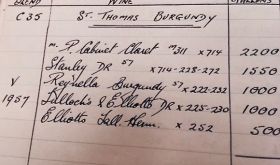 BLEND WINE GALLONS
C35 ST. THOMAS BURGUNDY
m. P. Cabinet Claret m311 x714 2200
Stanley DR 57 x714-228-272 1550
V Reynella Burgundy 57 x222-232 1000
1957 Tulloch's & Elliotts DR x225-230 1000
Elliotts Tall. Herm. x 252 500